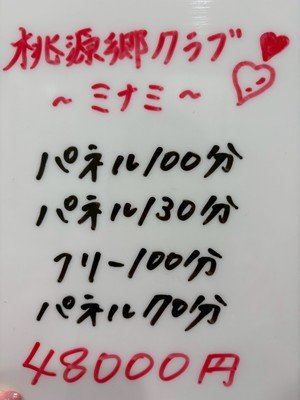 桃源郷クラブ
~ミナミ~
パネル100分
パネル130分
フリー100分
パネル70分
48000円